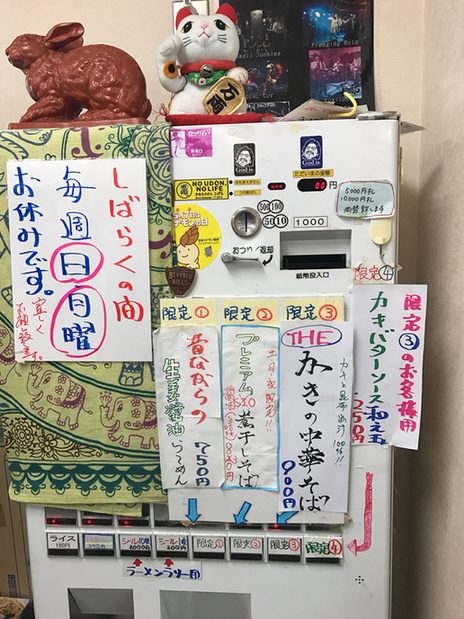 Freezing Rain
NO UDON, NO LIFE
God is.
God is.
ただいまの金額
00
5,000円札
10,000円札
両替致します
500 100
50 10
1000
おつり/返却
紙幣投入口
BEVERLY HILLS
しばらくの間
毎週日・月曜
お休みです。
宜しく
お願い致します。
限定①
限定②
限定③
限定④
昔ながらの
生姜醤油
らーめん
750円
土・日・祝限定!!
プレミアム
煮干しそば
THE
かきの中華そば
カキと昆布出汁100%!!
900円
限定③のお客様用
カキバターソース和え玉
250円
ライス
150円
シール10枚
2000円
シール1枚
200円
限定①
限定②
限定③
限定④
ラーメンラリー用